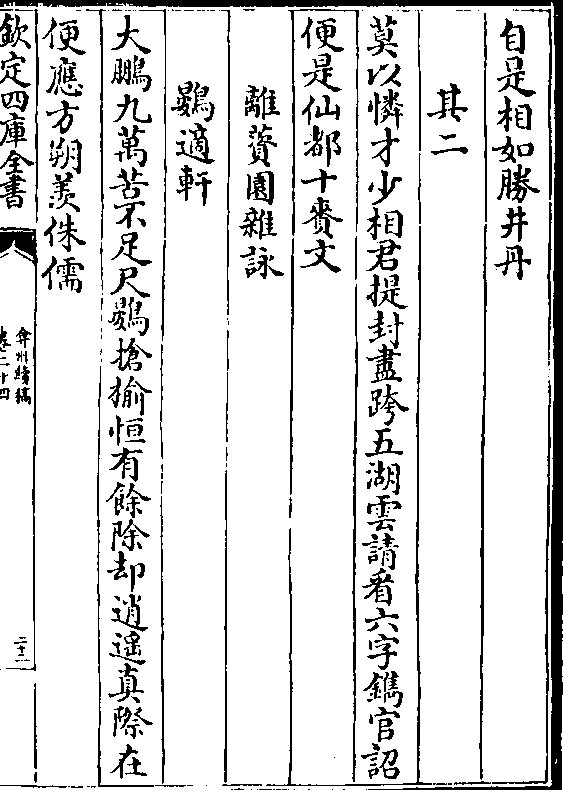 自是相如勝井丹
其二
莫以憐才少相君提封盡跨五湖雲請看六字鐫官詔
便是仙都十賚文
離薋園雜詠
鷃適軒
大鵬九萬苦不足尺鷃搶揄恒有餘除却逍遥真際在
便應方朔羡侏儒
欽定四庫全書
弇州續稿
卷二十四
二十二